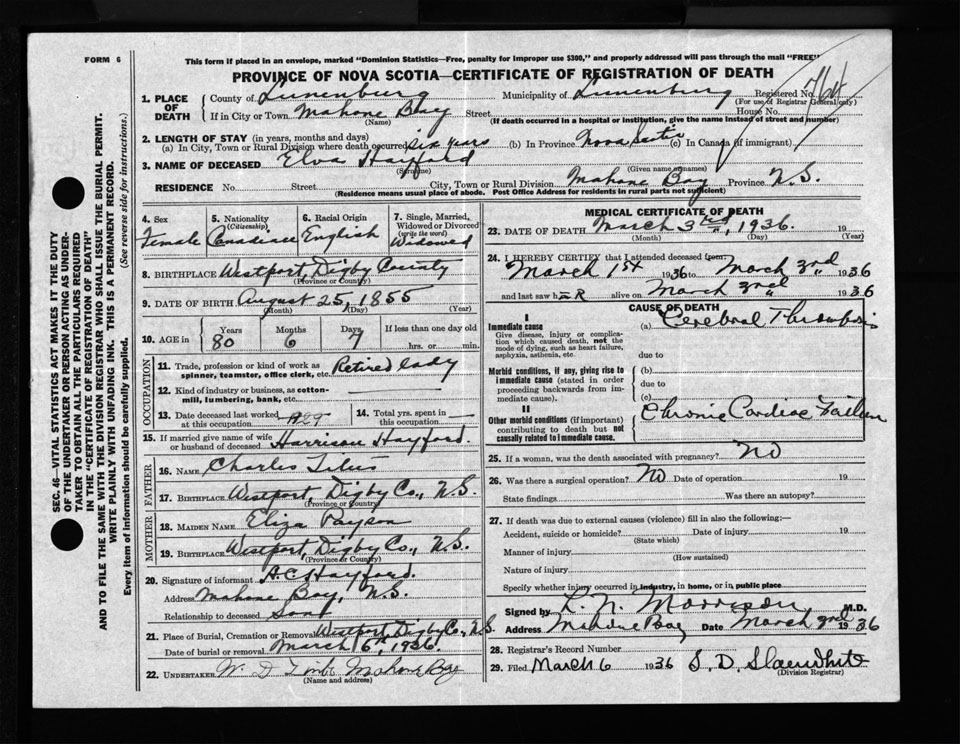 FORM 6
This form if placed in an envelope, marked "Dominion Statistics—Free, penalty for improper use $300," and properly addressed will pass through the mail "FREE"
PROVINCE OF NOVA SCOTIA—CERTIFICATE OF REGISTRATION OF DEATH
SEC. 46—VITAL STATISTICS ACT MAKES IT THE DUTY
OF THE UNDERTAKER OR PERSON ACTING AS UNDER-
TAKER TO OBTAIN ALL THE PARTICULARS REQUIRED
IN THE "CERTIFICATE OF REGISTRATION OF DEATH"
AND TO FILE THE SAME WITH THE DIVISION REGISTRAR WHO SHALL ISSUE THE BURIAL PERMIT.
WRITE PLAINLY WITH UNFADING INK. THIS IS A PERMANENT RECORD.
Every item of information should be carefully supplied. (See reverse side for instructions.)
1. PLACE OF DEATH County of Lunenburg Municipality of Lunenburg Registered No. 764
(For use of Registrar General only)
If in City or Town Mahone Bay Street House No.
(Name) (If death occurred in a hospital or institution, give the name instead of street and number)
2. LENGTH OF STAY (in years, months and days)
(a) In City, Town or Rural Division where death occurred six years (b) In Province Nova Scotia (c) In Canada (if immigrant)
3. NAME OF DECEASED Elva Hayford
(Surname) (Given name or names)
RESIDENCE No. Street City, Town or Rural Division Mahone Bay Province N.S.
(Residence means usual place of abode. Post Office Address for residents in rural parts not sufficient)
4. Sex Female
5. Nationality (Citizenship) Canadian
6. Racial Origin English
7. Single, Married, Widowed or Divorced (write the word) Widowed
8. BIRTHPLACE Westport, Digby County
(Province or Country)
9. DATE OF BIRTH August 25, 1855
(Month) (Day) (Year)
10. AGE in Years 80 Months 6 Days 7 If less than one day old hrs. or min.
OCCUPATION
11. Trade, profession or kind of work as spinner, teamster, office clerk, etc. Retired lady
12. Kind of industry or business, as cotton-mill, lumbering, bank, etc.
13. Date deceased last worked at this occupation 1929
14. Total yrs. spent in this occupation
15. If married give name of wife or husband of deceased Harrison Hayford.
FATHER
16. NAME Charles Titus
17. BIRTHPLACE Westport, Digby Co., N.S.
(Province or Country)
MOTHER
18. MAIDEN NAME Eliza Payson
19. BIRTHPLACE Westport, Digby Co., N.S.
(Province or Country)
20. Signature of informant H.C. Hayford.
Address Mahone Bay, N.S.
Relationship to deceased Son
21. Place of Burial, Cremation or Removal Westport, Digby Co., N.S.
Date of burial or removal March 6th, 1936.
22. UNDERTAKER Mahone Bay
(Name and address)
MEDICAL CERTIFICATE OF DEATH
23. DATE OF DEATH March 3rd, 1936. 19
(Month) (Day) (Year)
24. I HEREBY CERTIFY that I attended deceased from
March 1st 1936 to March 3rd 1936
and last saw her alive on March 3rd 1936
CAUSE OF DEATH
I
Immediate cause
Give disease, injury or complica-
tion which caused death, not the
mode of dying, such as heart failure,
asphyxia, asthenia, etc.
(a) Cerebral Thrombosis
due to
Morbid conditions, if any, giving rise to
immediate cause (stated in order
proceeding backwards from im-
mediate cause).
(b)
due to
(c)
II
Other morbid conditions (if important)
contributing to death but not
causally related to immediate cause.
Chronic Cardiac Failure
25. If a woman, was the death associated with pregnancy? NO
26. Was there a surgical operation? NO Date of operation 19
State findings Was there an autopsy?
27. If death was due to external causes (violence) fill in also the following:—
Accident, suicide or homicide? Date of injury 19
(State which)
Manner of injury
(How sustained)
Nature of injury
Specify whether injury occurred in industry, in home, or in public place
Signed by Morrison M.D.
Address Mahone Bay Date March 3rd 1936
28. Registrar's Record Number
29. Filed March 6 1936 S. D. Slaenwhite
(Division Registrar)